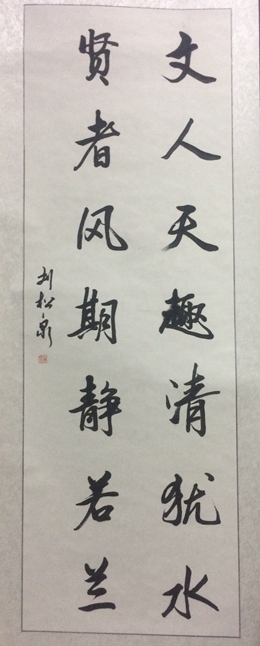 文人天趣清犹水
贤者风期静若兰
刘松泉